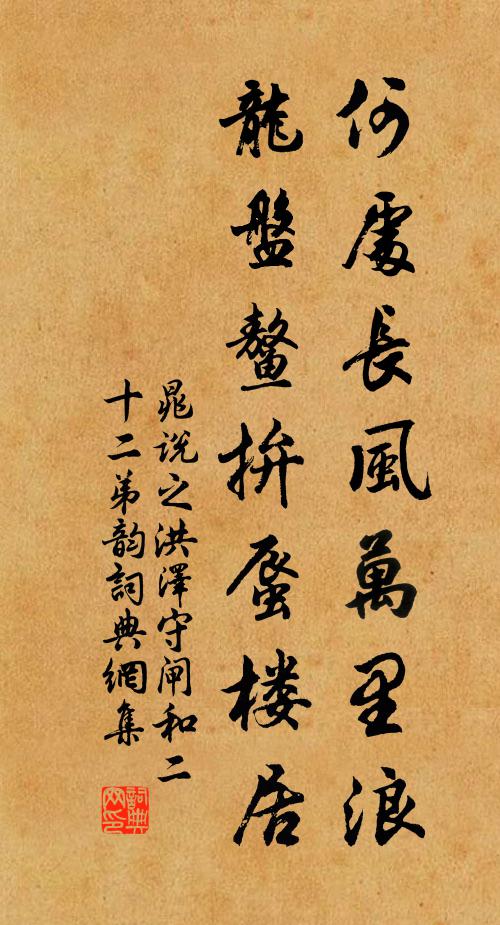 何處長風萬里浪
龍盤鼇抃蜃楼居
晁說之洪澤守閘和二
十二弟韵詞典網集
詞典網印